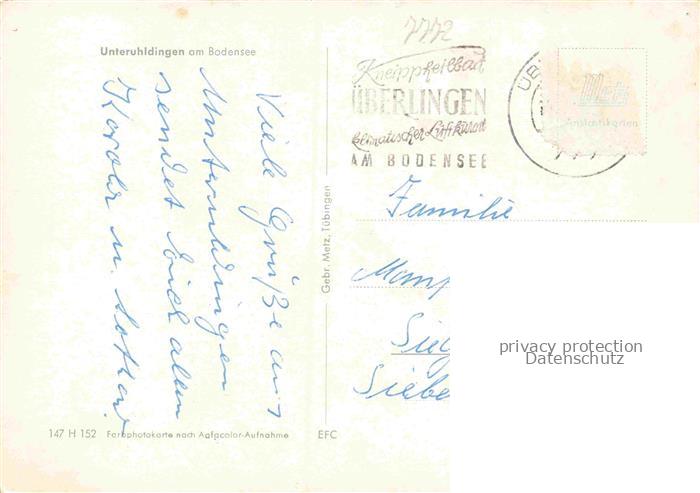 7772
Unteruhldingen am Bodensee
Kneippheilbad
ÜBERLINGEN
klimatischer Luftkurort
AM BODENSEE
ÜB
Metz
Kunstanstkarten
Viele Grüße aus
Unteruldingen
sendet Euch allen
u. Lothar
Gebr. Metz, Tübingen
Familie
Mamp
Sieg
Siebe
privacy protection
Datenschutz
147 H 152 Farbphotokarte nach Agfacolor-Aufnahme EFC